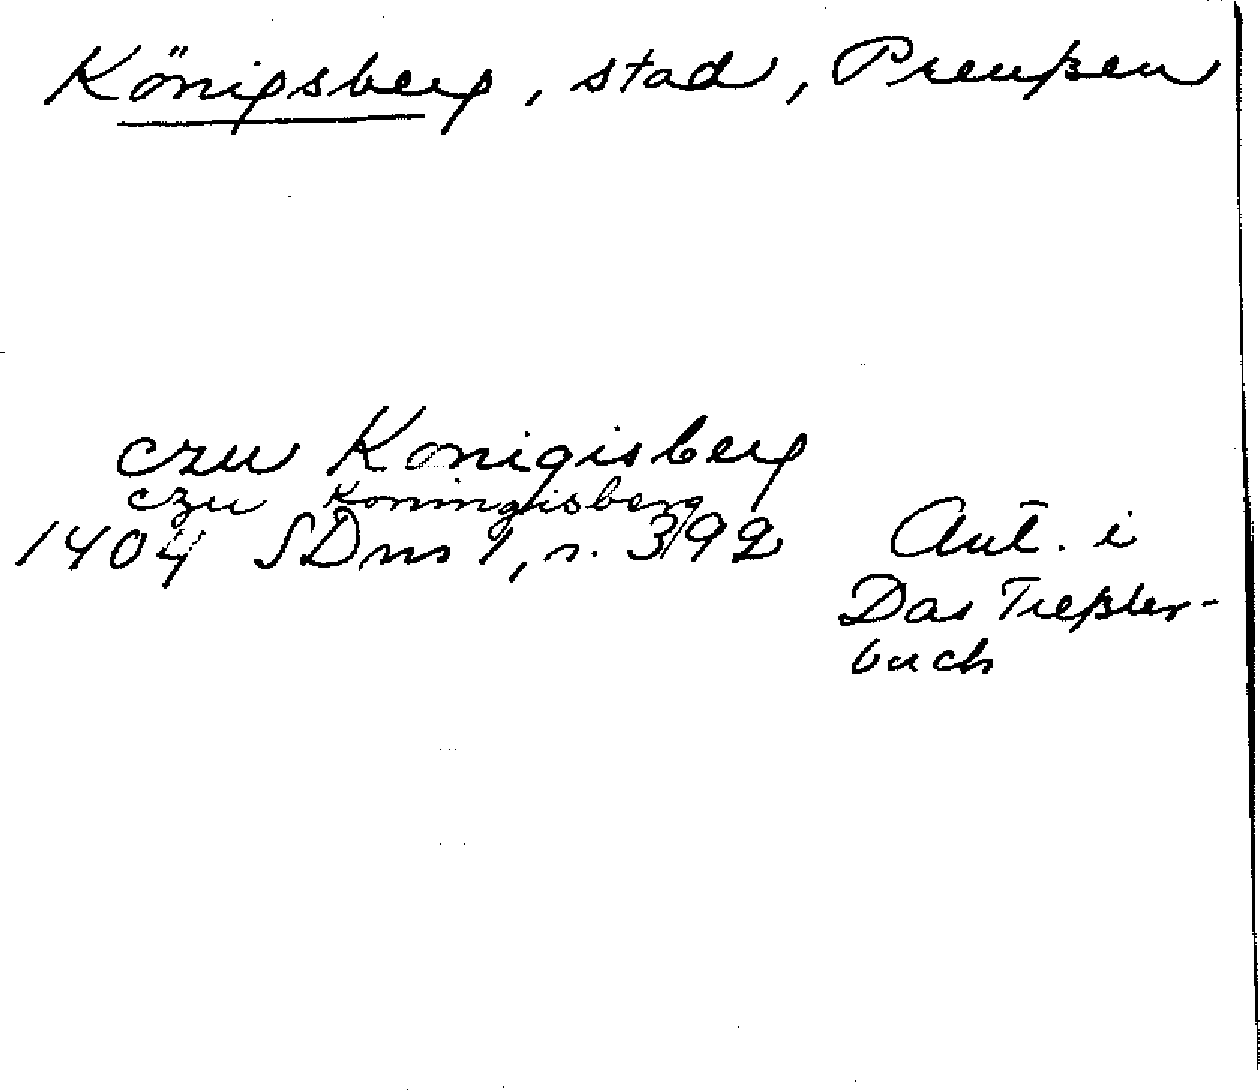 Königsberg, stad, Preußen
czu Konigisberg
czu Koningisberg
1404 SDns 1, s. 392
Ant. i
Das Treßler-
buch